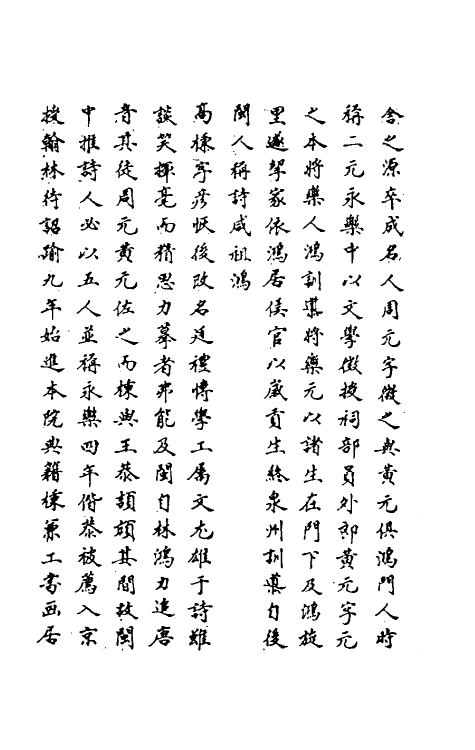 舍之源卒成名人周元字微之與黃元俱鴻門人時
稱二元永樂中以文學徵授祠部員外郎黃元字元
之本將樂人鴻訓導將樂元以諸生在門下及鴻旋
里遂挈家依鴻居侯官以歲貢生終泉州訓導自後
閩人稱詩咸祖鴻
高棅字彥恢後改名廷禮博學工屬文尤雄于詩雖
談笑揮毫而精思力摹者弗能及閩自林鴻力追唐
音其徒周元黃元佐之而棅與王恭頡頏其間故閩
中推詩人必以五人並稱永樂四年偕恭被薦入京
授翰林待詔踰九年始進本院典籍棅兼工書画居